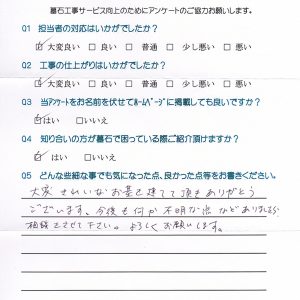 墓石工事サービス向上のためにアンケートのご協力お願いします。
Q1 担当者の対応はいかがでしたか?
☑大変良い □良い □普通 □少し悪い □悪い
Q2 工事の仕上がりはいかがでしたか?
☑大変良い □良い □普通 □少し悪い □悪い
Q3 当アンケートをお名前を伏せてホームページに掲載しても良いですか?
☑はい □いいえ
Q4 知り合いの方が墓石で困っている際ご紹介頂けますか?
☑はい □いいえ
Q5 どんな些細な事でも気になった点、良かった点等をお書きください。
大変きれいなお墓を建てて頂きありがとう
ございます。今後も何か不明な点などありましたら
相談させて下さい。よろしくお願いします。